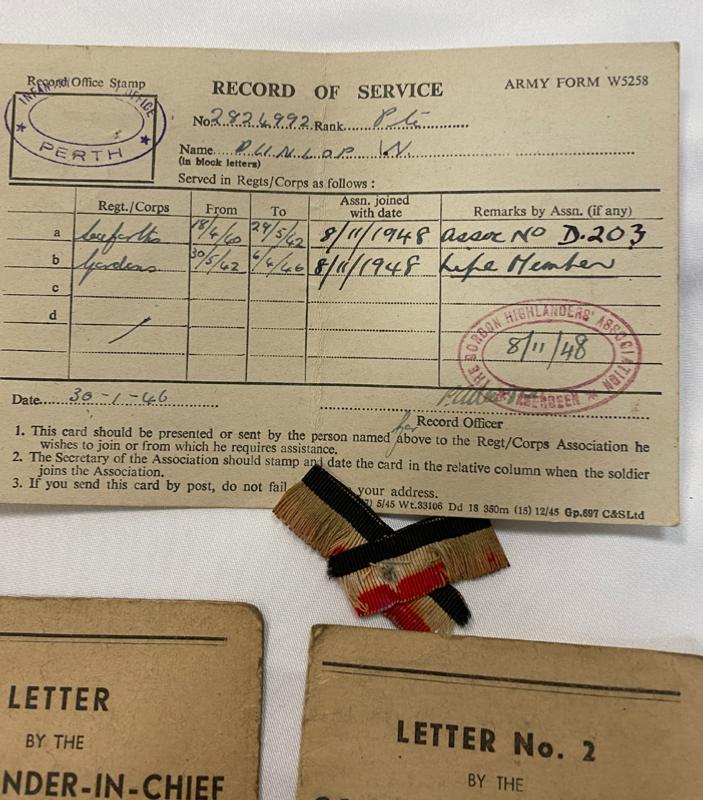 Record Office Stamp
RECORD OF SERVICE
ARMY FORM W5258
PERTH
No. 2824992 Rank Pte
Name DUNLOP W.
(in block letters)
Served in Regts/Corps as follows :
Regt./Corps From To Assn. joined with date Remarks by Assn. (if any)
a Seaforths 18/4/40 29/5/42 8/11/1948 Assoc No D.203
b Gordons 30/5/42 6/4/46 8/11/1948 Life Member
c
d
THE GORDON HIGHLANDERS' ASSOCIATION
8/11/48
ABERDEEN
Date 30-1-46
for Record Officer
1. This card should be presented or sent by the person named above to the Regt/Corps Association he
wishes to join or from which he requires assistance.
2. The Secretary of the Association should stamp and date the card in the relative column when the soldier
joins the Association.
3. If you send this card by post, do not fail your address.
5/45 Wt.33106 Dd 18 350m (15) 12/45 Gp.697 C&SLtd
H
LETTER
BY THE
NDER-IN-CHIEF
LETTER No. 2
BY THE